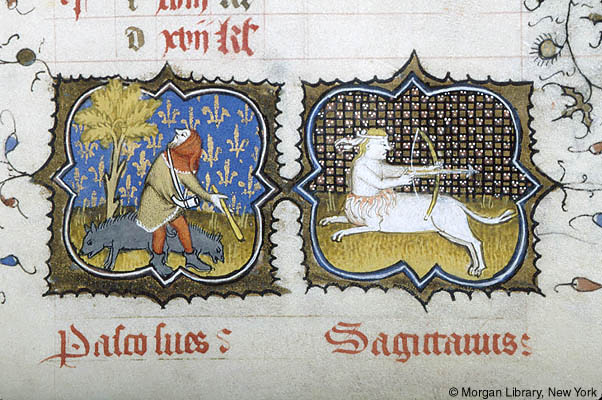 D xvij kł
Pasco sues :
Sagittarius :
© Morgan Library, New York